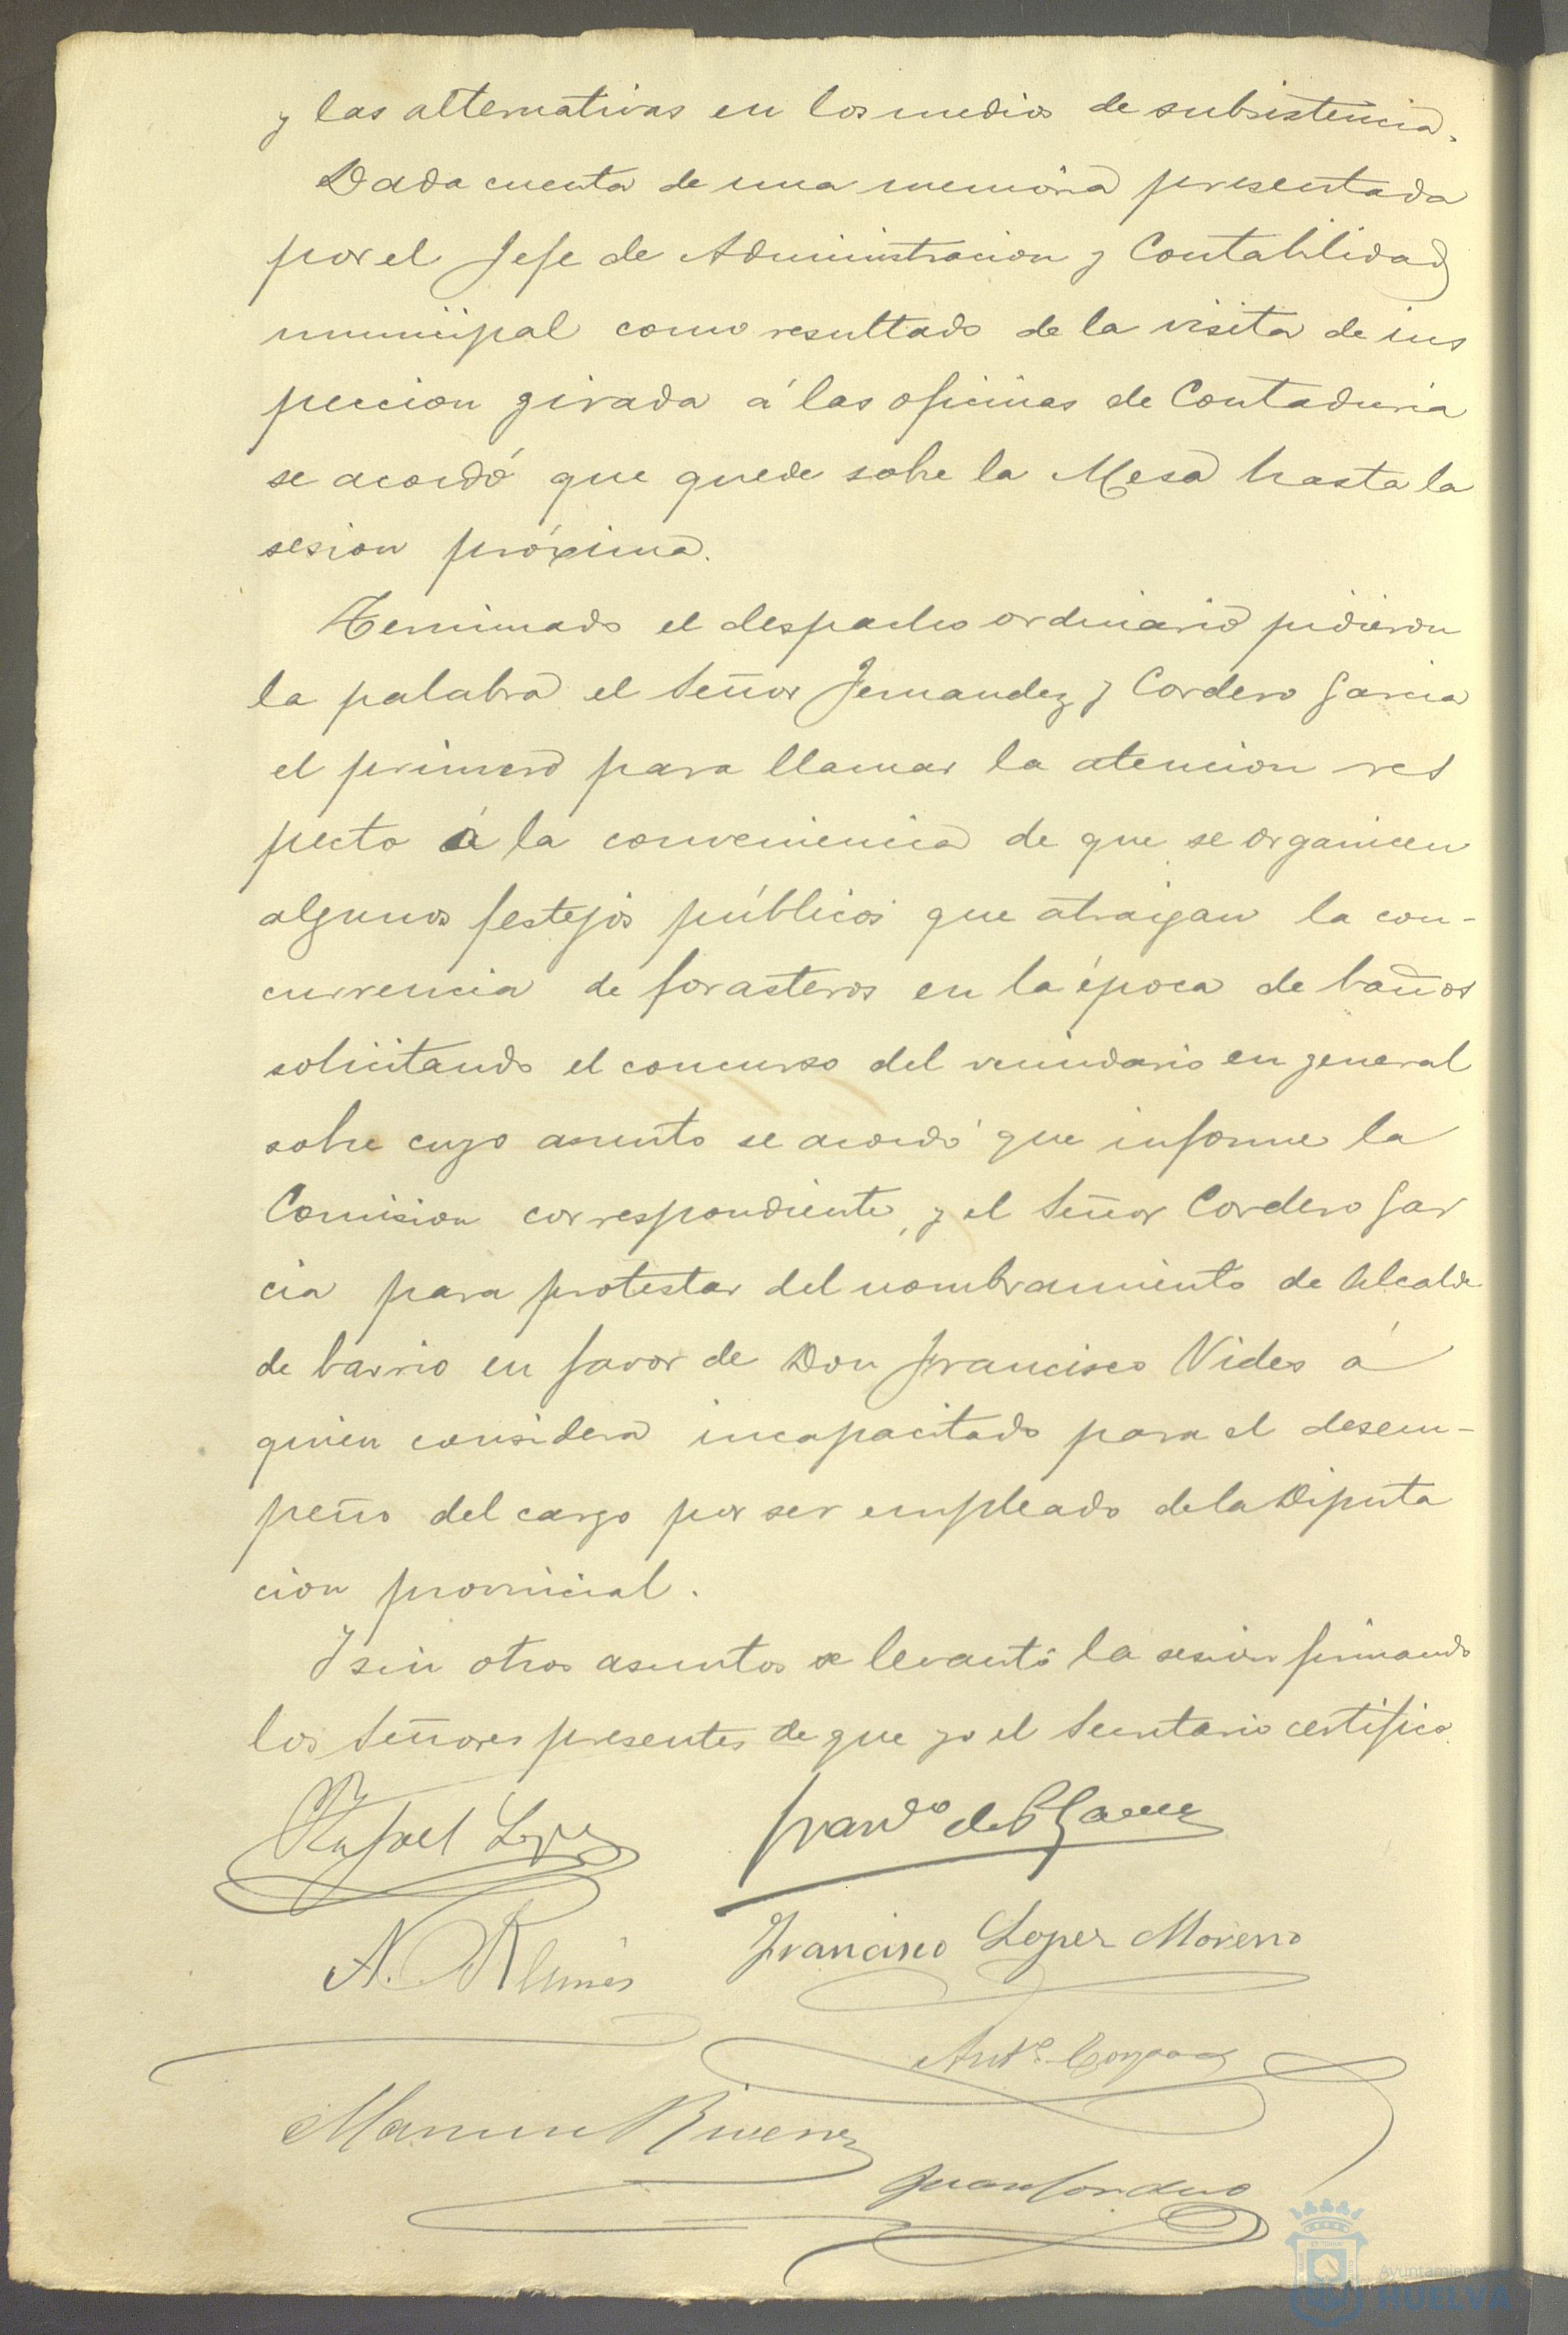 y las alternativas en los medios de subsistencia.
Dada cuenta de una memoria presentada
por el Jefe de Administracion y Contabilidad
municipal como resultado de la visita de ins
peccion girada á las oficinas de Contaduria
se acordó que quede sobre la Mesa hasta la
sesion próxima.
Terminado el despacho ordinario pidieron
la palabra el Señor Fernandez y Cordero Garcia
el primero para llamar la atencion res
pecto á la conveniencia de que se organicen
algunos festejos públicos que atraigan la con-
currencia de forasteros en la época de baños
solicitando el concurso del vecindario en general
sobre cuyo asunto se acordó que informe la
Comision correspondiente, y el Señor Cordero Gar
cia para protestar del nombramiento de Alcalde
de barrio en favor de Don Francisco Vides á
quien considera incapacitado para el desem-
peño del cargo por ser empleado de la Diputa
cion provincial.
Y sin otros asuntos se levantó la sesion firmando
los Señores presentes de que yo el Secretario certifico.
Rafael Lopez
Franco de P
Francisco Lopez Moreno
A.
Anto
Manuel
Juan Cordero
Ayuntamiento
HUELVA